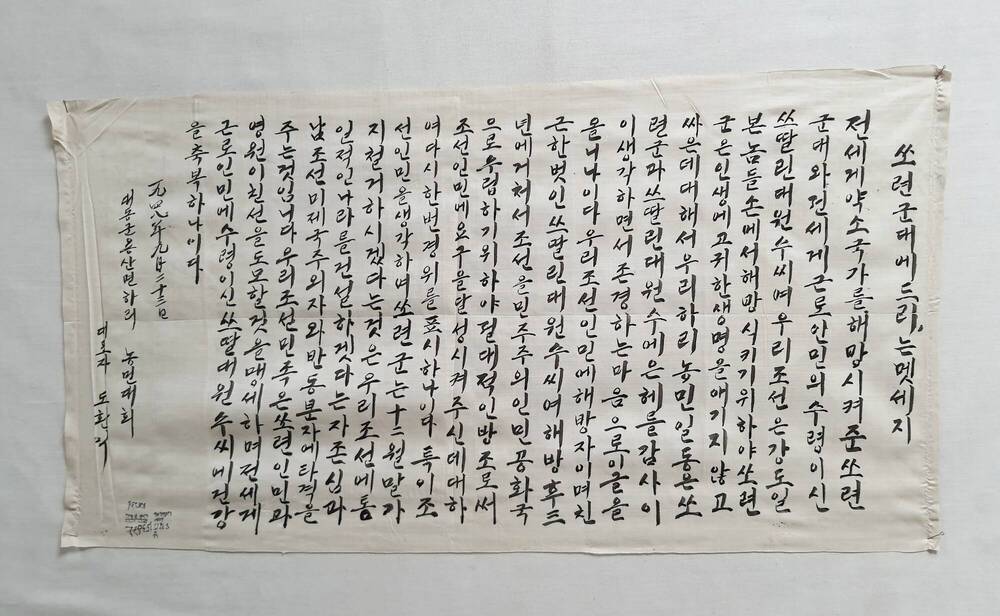 쏘련군대에드리는멧세지
전세게약소국가를해방시켜준쏘련
군대와전세게근로인민의수령이신
쓰딸린대원수씨여우리조선은강도일
본놈들손에서해방식키기위하야쏘련
군은인생에고귀한생명을애기지않고
싸은데대해서우리하리농민일동은쏘
련군과쓰딸린대원수에은헤를감사이
이생각하면서존경하는마음으로이글을
올니나이다우리조선인민에해방자이며친
근한벗인쓰딸린대원수씨여해방후三
년에거처서조선을민주주의인민공화국
으로수립하기위하야절대적인방조로써
조선인민에요구를달성시켜주신데대하
여다시한번경위를표시하나이다 특이조
선인민을생각하며쏘련군는十二월말가
지철거하시겠다는것은우리조선에통
일적인나라를건설하겟다는자존심과
남조선미제국주외자와반동분자에타격을
주는것임니다우리조선민족은쏘련인민과
영원이친선을도모할것을맹세하며전세게
근로인민에수령이신쓰딸대원수씨에건강
을축복하나이다
一九四八年九月二十三日
대동군문산면하리 농민대회
대표자